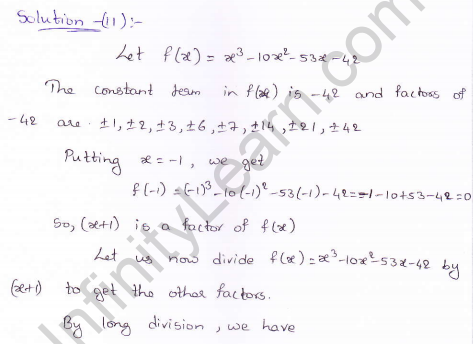 Solution -(11):-
Let f(x) = x³-10x²-53x-42
The constant term in f(x) is -42 and factors of
-42 are. ±1, ±2, ±3, ±6, ±7, ±14, ±21, ±42
Putting x = -1, we get
f(-1) = (-1)³-10(-1)²-53(-1)-42=-1-10+53-42=0
So, (x+1) is a factor of f(x)
Let us now divide f(x) = x³-10x²-53x-42 by
(x+1) to get the other factors.
By long division, we have
InfinityLearn.com